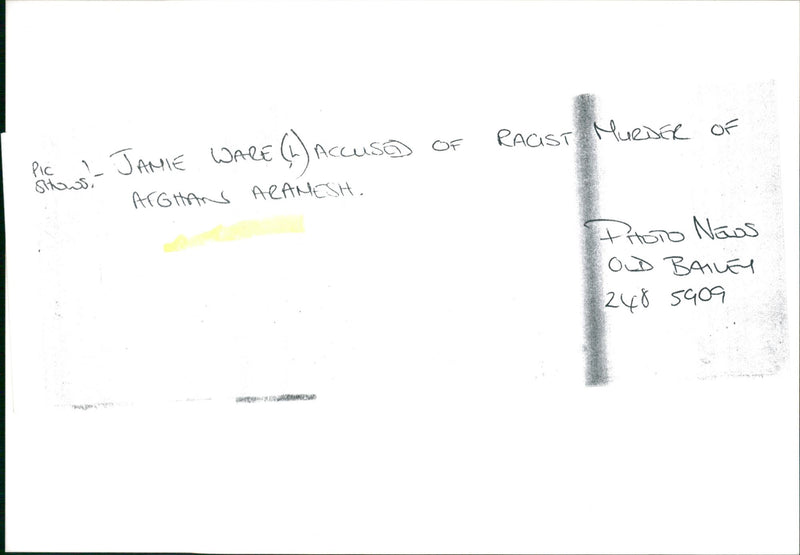 PIC SHOWS!- JAMIE WARE (L) ACCUSED OF RACIST MURDER OF
AFGHAN ARAMESH.
PHOTO NEWS
OLD BAILEY
248 5909